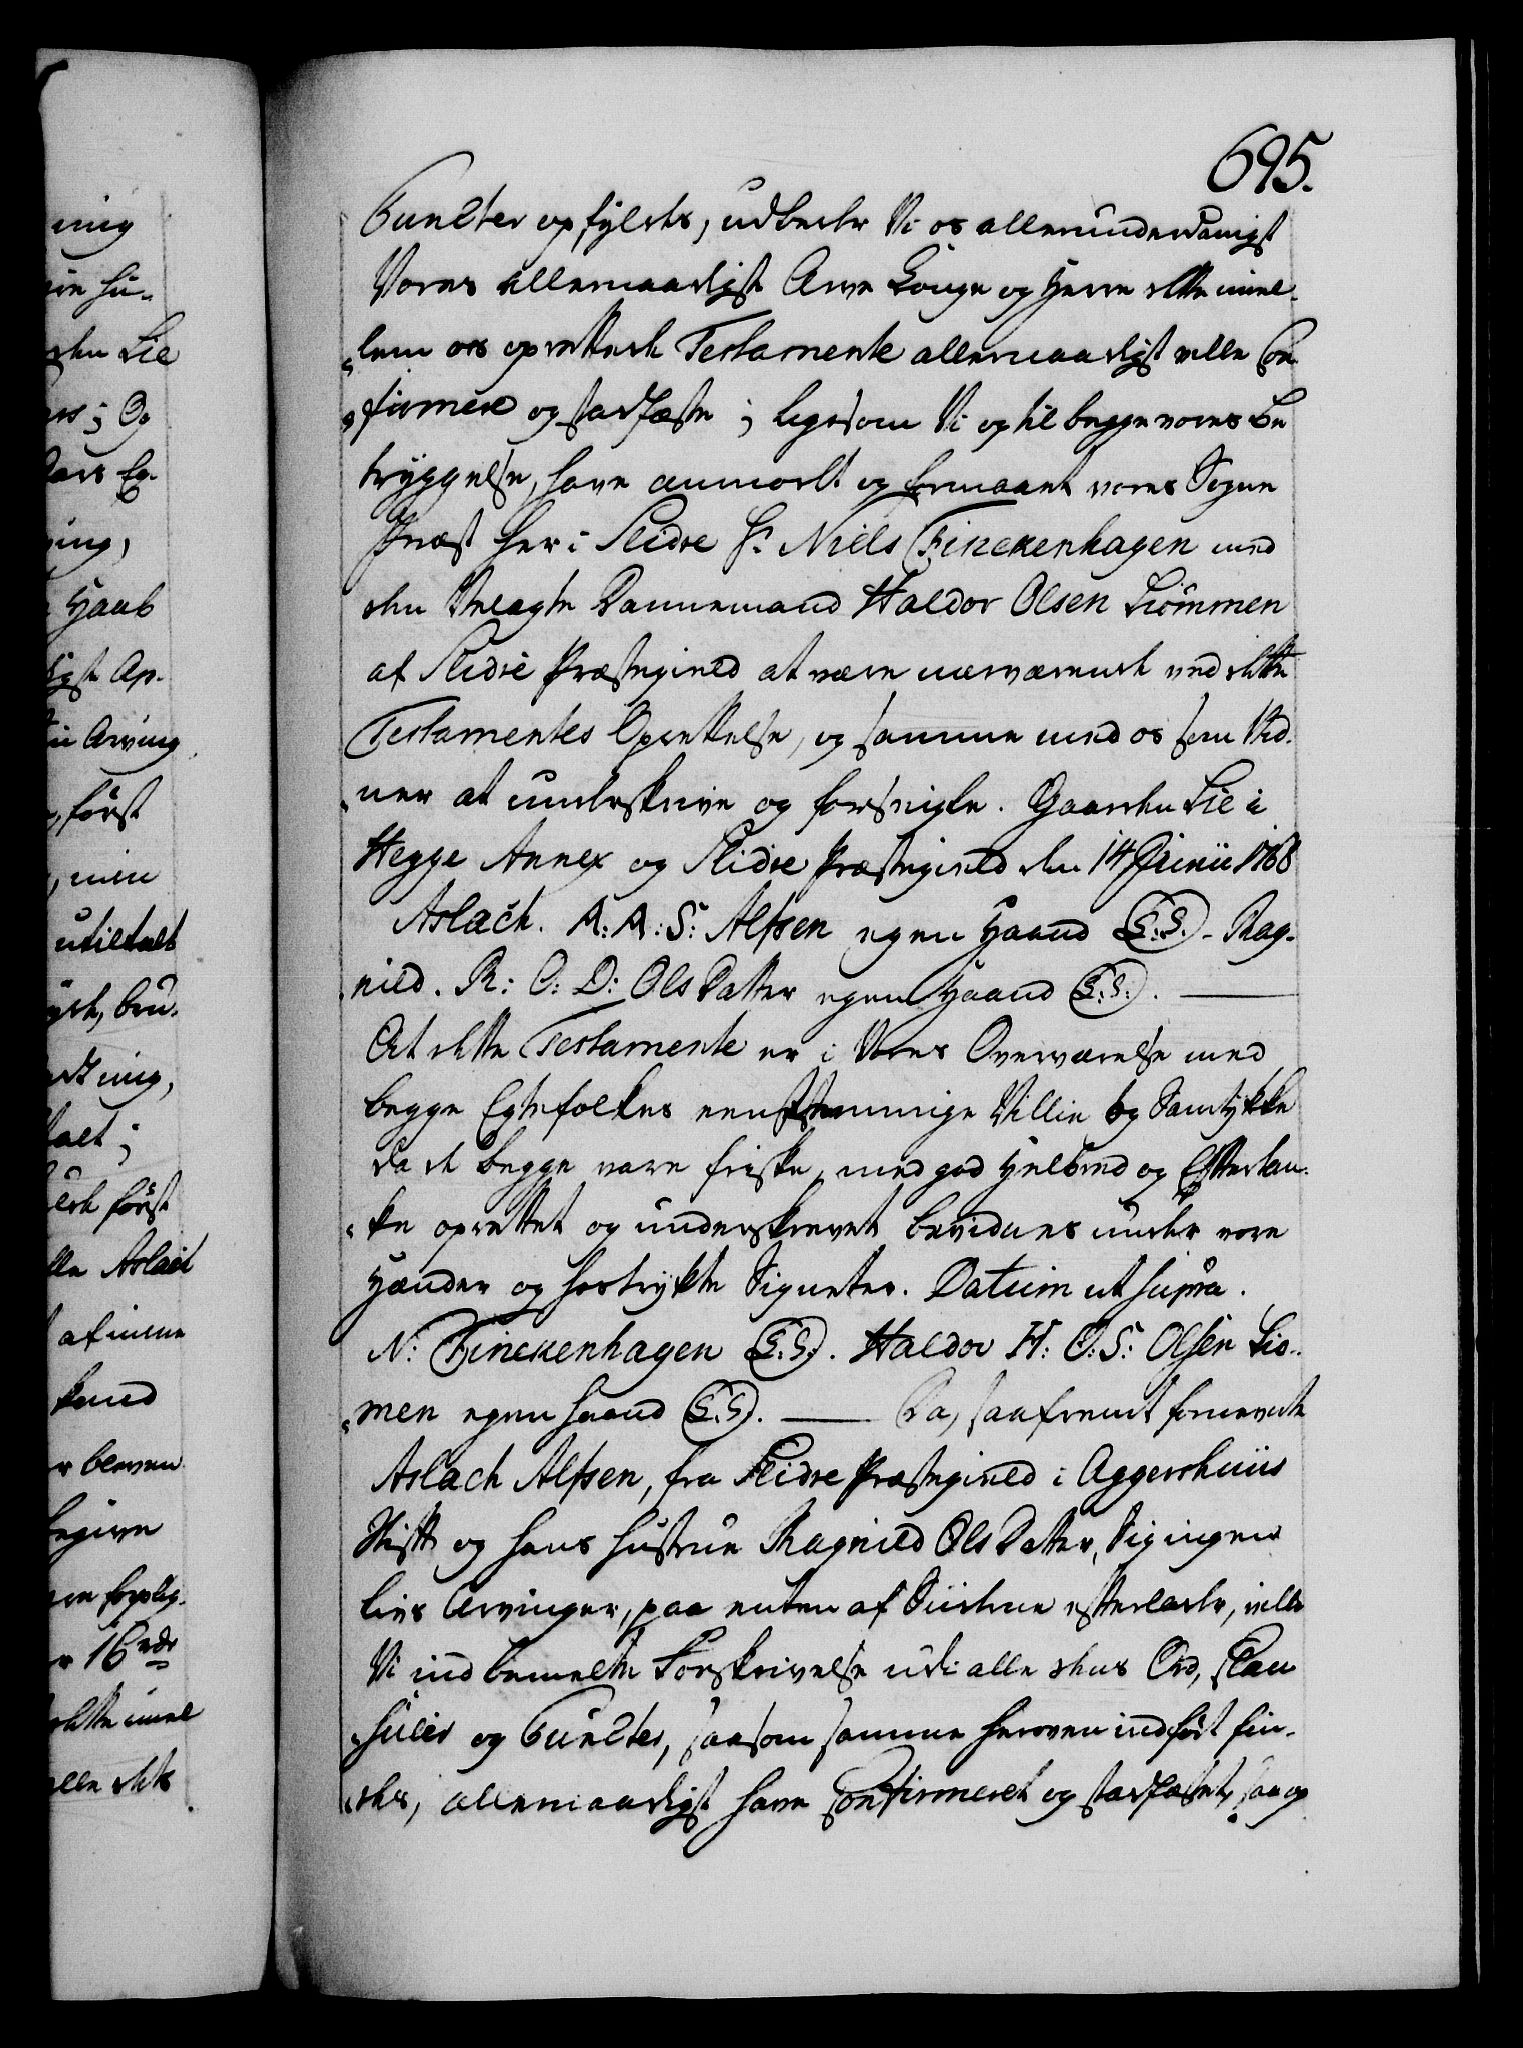 695.
Puncter opfyldes, udbeder Vi os allerunderdanigst
Vores allernaadigste Arve Konge og Herre dette imel-
lem os oprettede Testamente allernaadigst ville Con-
firmere og stadfæste; ligesom Vi og til begge vores be-
tryggelse, have anmodet og formaaet vores Sogne
Præst her i Slidre Hr Niels Finckenhagen med
den Velagte Dannemand Haldor Olsen Liømmen
af Slidre Præstegield at være nærværende ved dette
Testamentes Oprettelse, og samme med os som Vid-
ner at underskrive og forsegle. Gaarden Lie i
Hegge Annex og Slidre Præstegield den 14 Junii 1768
Aslach. A: A: S: Alfsen egen Haand (L.S.) - Rag-
nild. R: O: D: OlsDatter egen Haand (L.S.).
At dette Testamente er i Vores Overværelse med
begge Egtefolkes eenstemmige Villie og Samtykke
da de begge vare friske, med god Helbred og Eftertan-
ke oprettet og underskrevet bevidnes under vore
Hænder og hostrykte Signeter. Datum ut supra.
N: Finckenhagen (L.S.). Haldor H: O: S: Olsen Lio-
men egen Haand (L.S). Da, saafremt fornevnte
Aslach Alfsen, fra Slidre Præstegield i Aggershuus
Stift og hans Hustrue Ragnild OlsDatter, Sig ingen
livs Arvinger, paa enten af Siiderne efterlader, ville
Vi indbemelte Forskrivelse udi alle dens Ord, Clau-
suler og Puncter, saasom samme heroven indført fin-
des, allernaadigst have Confirmeret og stadfæstet, saa og
mig
Lie
Og
Haab
Ap-
Arving
først
min
utiltalt
mig,
først
Aslach
af mine
16